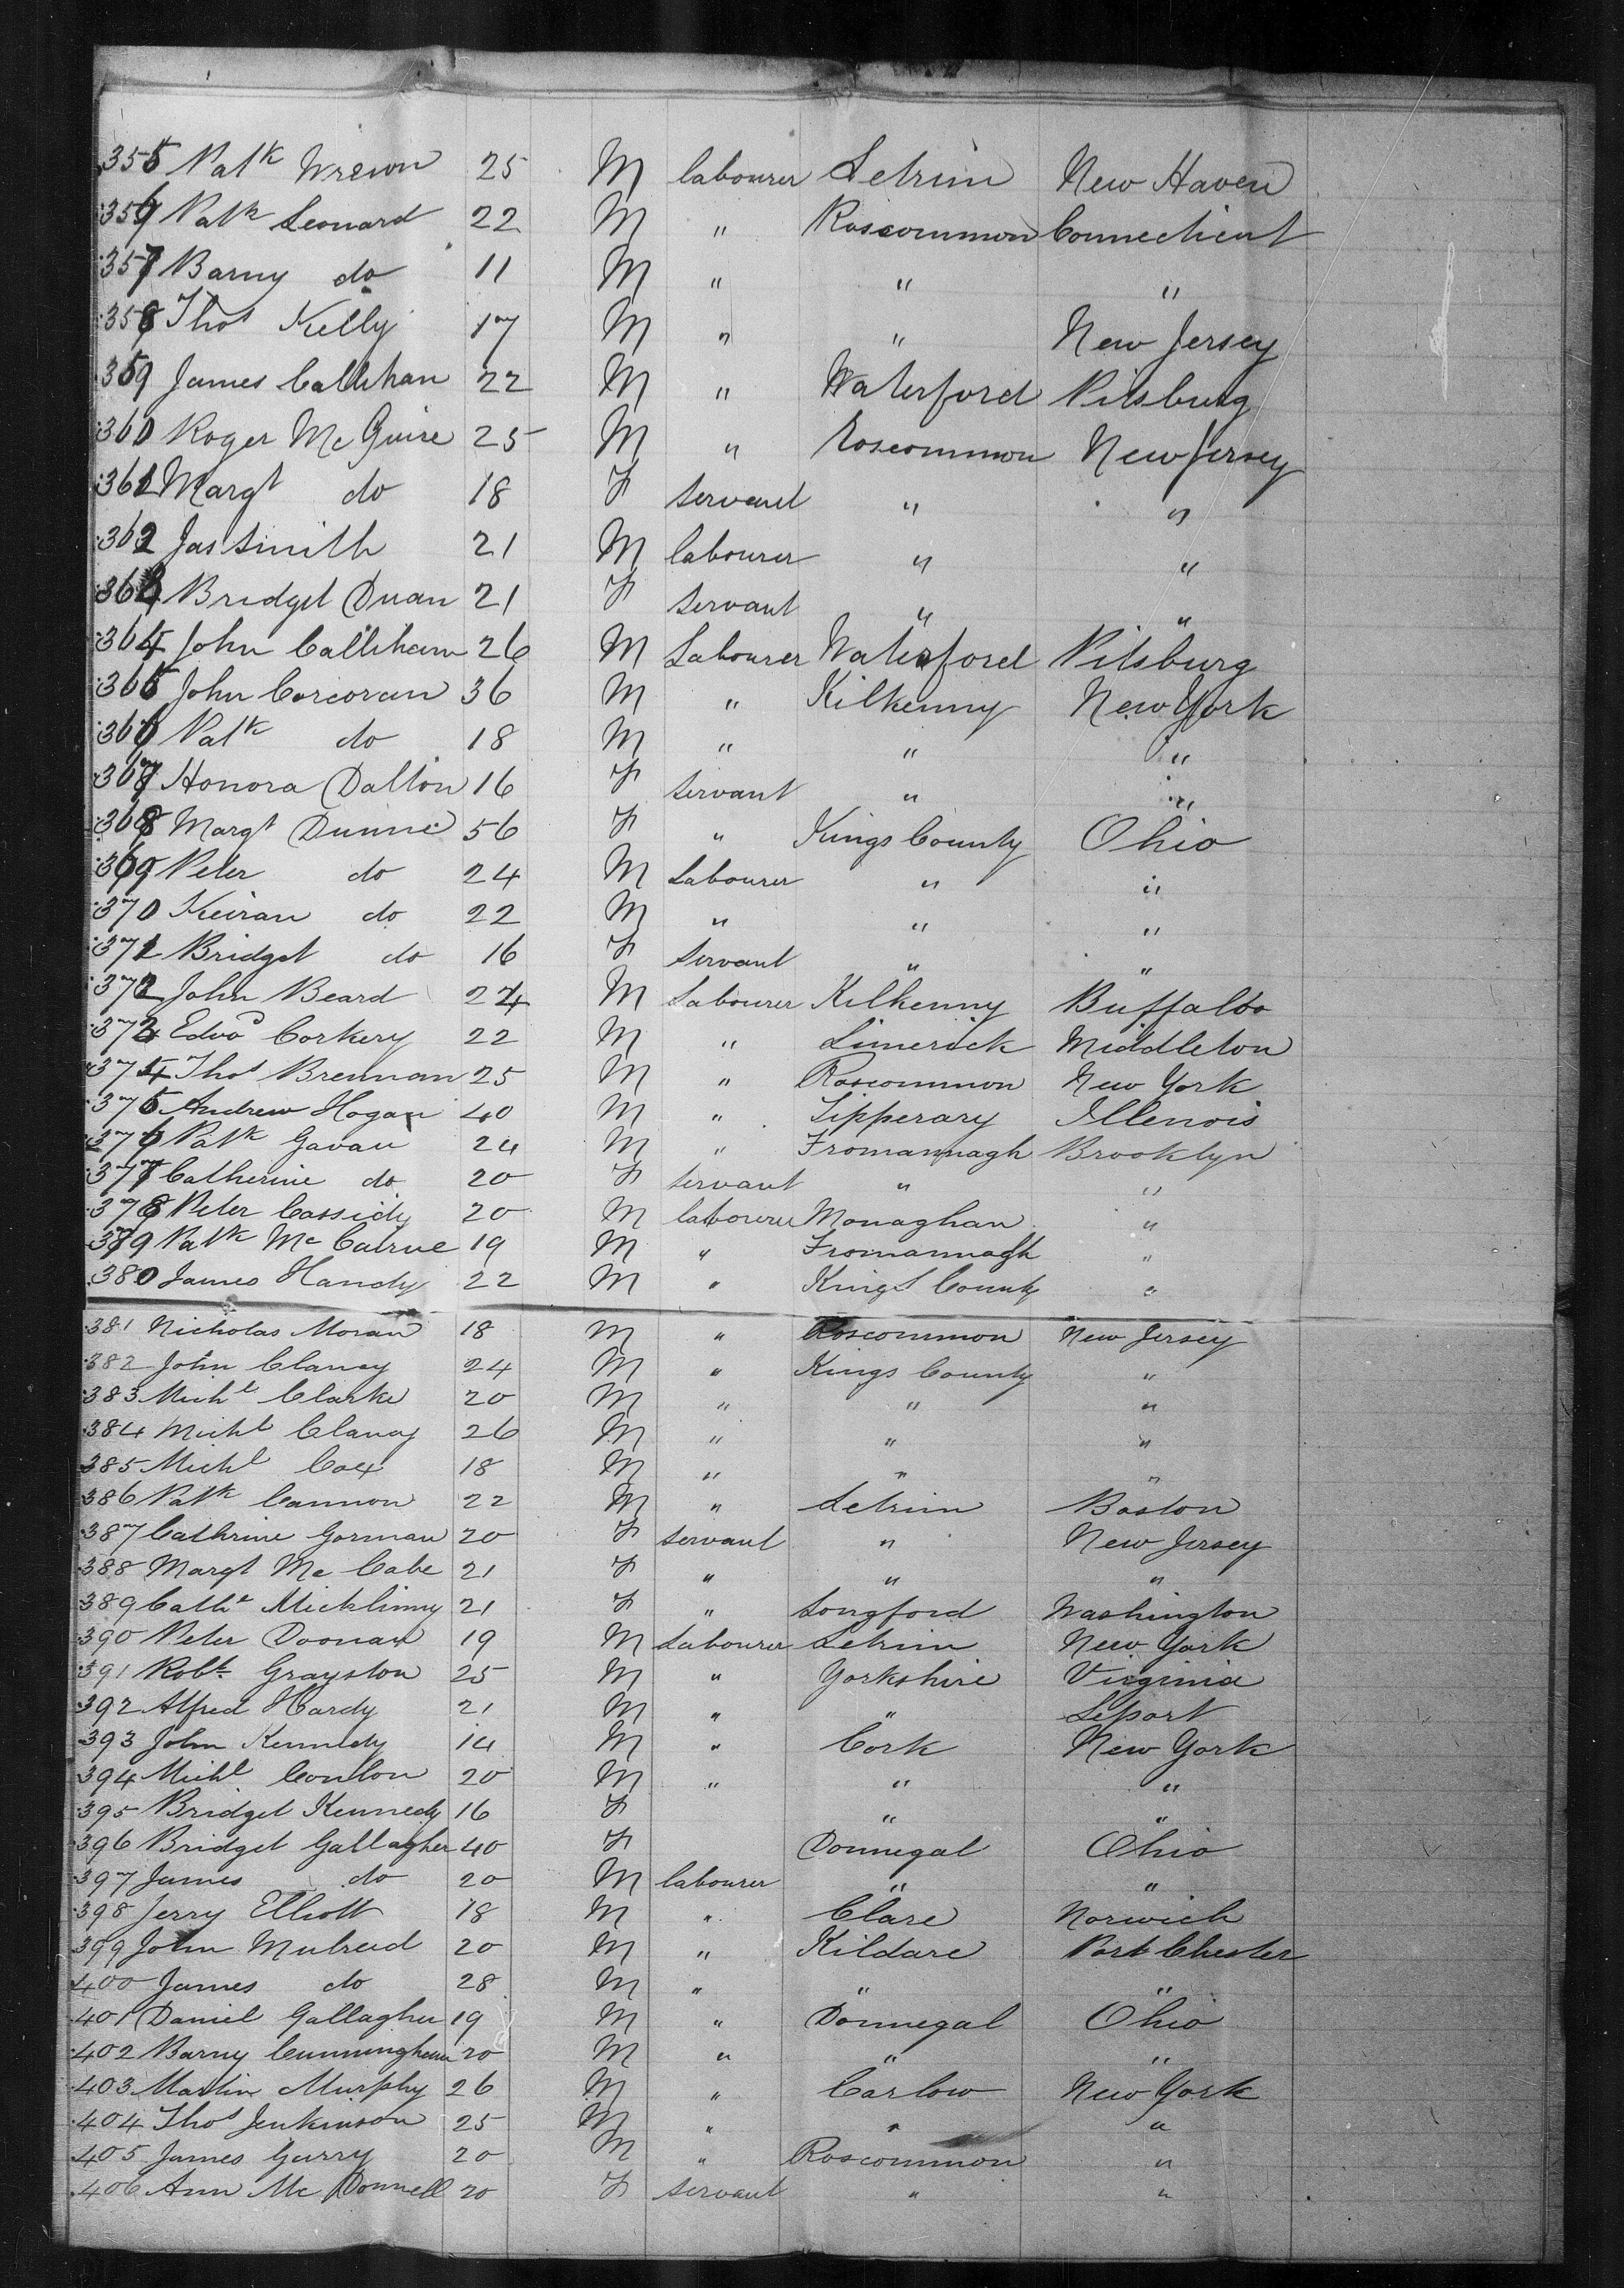 355 Patk Wrewn 25 M labourer Letrim New Haven
356 Patk Leonard 22 M " Roscommon Connecticut
357 Barny do 11 M " " "
358 Thos Kelly 17 M " " New Jersey
359 James Callihan 22 M " Waterford Pitsburg
360 Roger McGuire 25 M " Roscommon New Jersey
361 Margt do 18 F servant " "
362 Jas Smith 21 M labourer " "
363 Bridget Duan 21 F servant " "
364 John Callihan 26 M Labourer Waterford Pitsburg
365 John Corcoran 36 M " Kilkenny New York
366 Patk do 18 M " " "
367 Honora Dalton 16 F servant " "
368 Margt Dunne 56 F " Kings County Ohio
369 Peter do 24 M Labourer " "
370 Keiran do 22 M " " "
371 Bridget do 16 F servant " "
372 John Beard 24 M Labourer Kilkenny Buffalo
373 Edwd Corkery 22 M " Limerick Middleton
374 Thos Brennan 25 M " Roscommon New York
375 Andrew Hogan 40 M " Tipperary Illenois
376 Patk Gavan 24 M " Fromannagh Brooklyn
377 Catherine do 20 F servant " "
378 Peter Cassidy 20 M labourer Monaghan "
379 Patk Mc Catrue 19 M " Fromannagh "
380 James Handy 22 M " Kings County "
381 Nicholas Moran 18 M " Roscommon New Jersey
382 John Clancy 24 M " Kings County "
383 Michl Clarke 20 M " " "
384 Michl Clancy 26 M " " "
385 Michl Cox 18 M " " "
386 Patk Cannon 22 M " Letrim Boston
387 Cathrine Gorman 20 F servant " New Jersey
388 Margt Mc Cabe 21 F " " "
389 Cathe Micklinny 21 F " Longford Washington
390 Peter Doonan 19 M Labourer Letrim New York
391 Robt Grayston 25 M " Yorkshire Virginia
392 Alfred Hardy 21 M " " Leport
393 John Kennedy 14 M " Cork New York
394 Michl Conlon 20 M " " "
395 Bridget Kennedy 16 F " "
396 Bridget Gallagher 40 F Donnegal Ohio
397 James do 20 M labourer " "
398 Jerry Elliott 18 M " Clare Norwich
399 John Mulreid 20 M " Kildare Port Chester
400 James do 28 M " " "
401 Daniel Gallagher 19 M " Donnegal Ohio
402 Barny Cunningham 20 M " " "
403 Martin Murphy 26 M " Carlow New York
404 Thos Jenkinson 25 M " " "
405 James Garry 20 M " Roscommon "
406 Ann Mc Donnell 20 F servant " "